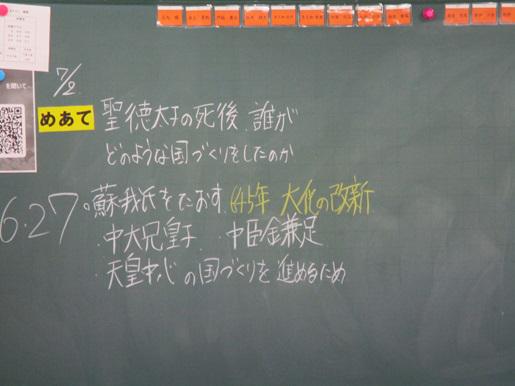 7/2
めあて 聖徳太子の死後、誰が
どのような国づくりをしたのか
6.27 。蘇我氏をたおす 645年 大化の改新
・中大兄皇子 ・中臣金兼足
・天皇中心の国づくりを進めるため
を開いて